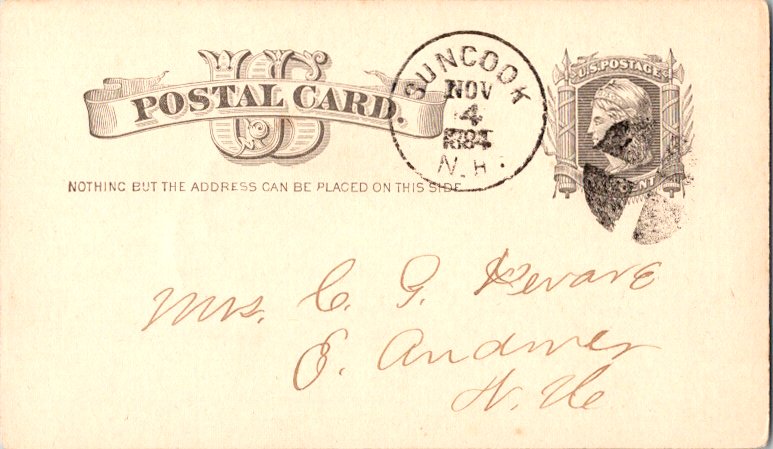 US
POSTAL CARD.
NOTHING BUT THE ADDRESS CAN BE PLACED ON THIS SIDE
SUNCOOK
NOV
4
1884
N.H.
U.S. POSTAGE
CENT
Mrs. C. G.
E. Andover
N. H